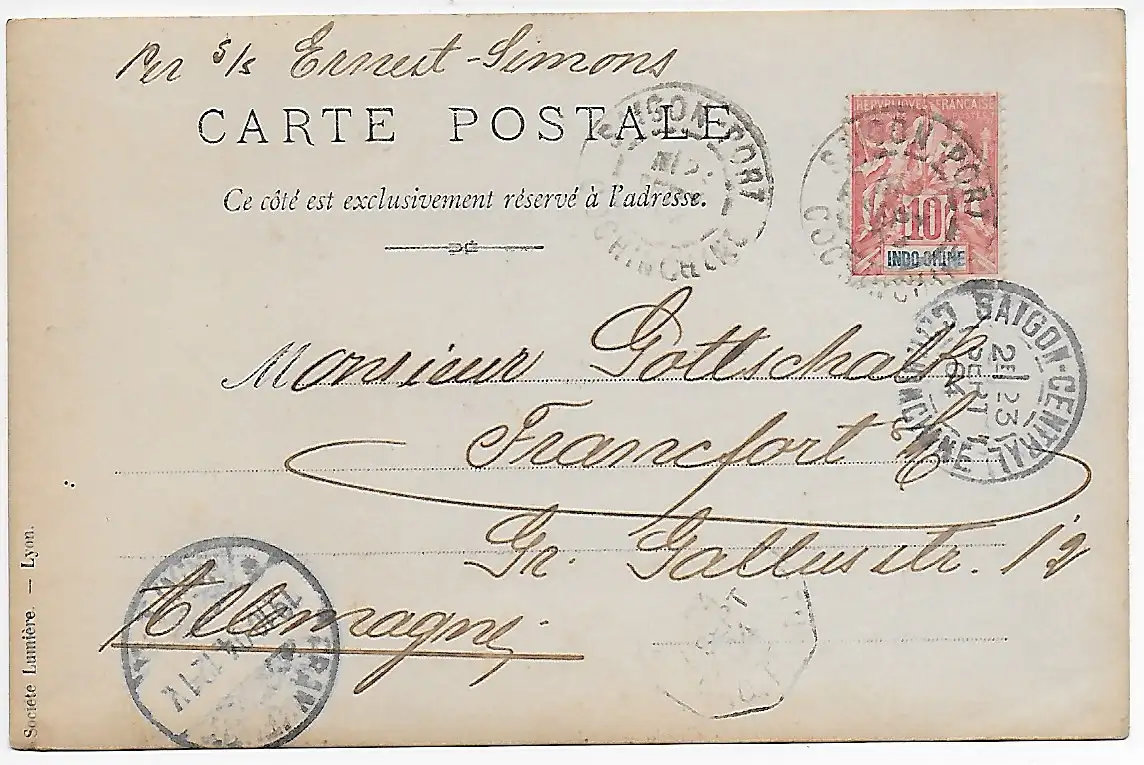 Per s/s Ernest-Simons
CARTE POSTALE
Ce côté est exclusivement réservé à l'adresse.
REPUBLIQUE FRANÇAISE
10
INDO-CHINE
SAIGON-PORT
COCHINCHINE
SAIGON-PORT
SAIGON-CENTRAL
2E 23
SEPT
04
COCHINCHINE
Monsieur Gottschalk
Francfort
Gr. Gallusstr. 12
Allemagne
Société Lumière. — Lyon.